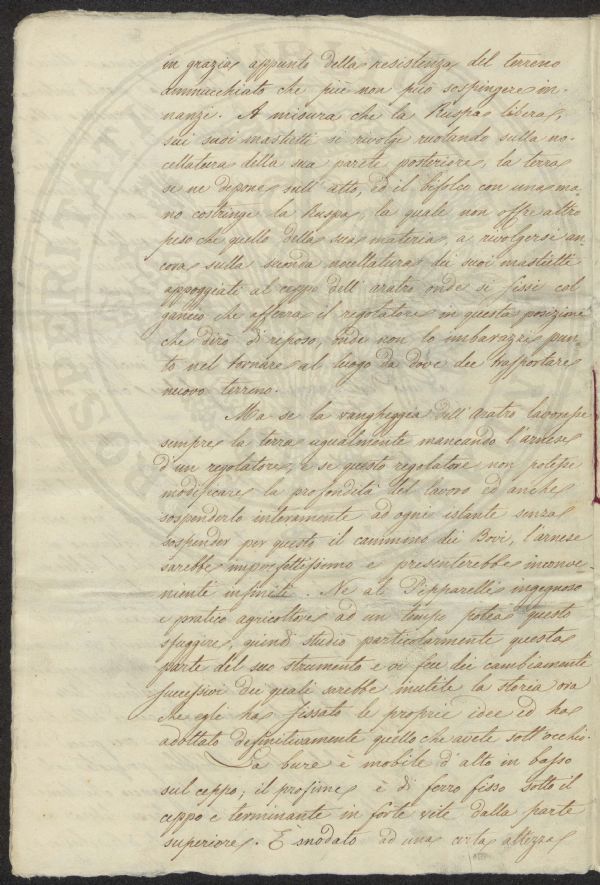 in grazia appunto della resistenza del terreno
ammucchiato che più non può sospingere in-
nanzi. A misura che la Ruspa libera,
sui suoi mastietti si rivolge ruotando sulla no-
cellatura della sua parete posteriore, la terra
se ne depone sull'atto, ed il bifolco con una ma-
no costringe la Ruspa, la quale non offre altro
peso che quello della sua materia, a rivolgersi an-
cora sulla seconda nocellatura dei suoi mastietti
appoggiati al ceppo dell'aratro onde si fissi col
gancio che afferra il regolatore in questa posizione
che dirò di reposo, onde non lo imbarazzi pun-
to nel tornare al luogo da dove dee trasportare
nuovo terreno.
Ma se la vangheggia dell'Aratro lavorasse
sempre la terra ugualmente mancando l'arnese
d'un regolatore, e se questo regolatore non potesse
modificare la profondità del lavoro ed anche
sospenderlo interamente ad ogni istante senza
sospender per questo il cammino dei Bovi, l'arnese
sarebbe imperfettissimo e presenterebbe inconve-
niente infiniti. Ne al Pipparelli ingegnoso
e pratico agricoltore ad un tempo potea questo
sfuggire, quindi studiò particolarmente questa
parte del suo strumento e vi fece dei cambiamenti
successivi dei quali sarebbe inutile la storia ora
che egli ha fissato le proprie idee ed ha
adottato definitivamente quello che avete sott'occhi.
La bure è mobile d'alto in basso
sul ceppo; il profime è di ferro fisso sotto il
ceppo e terminante in forte vite dalla parte
superiore. È snodato ad una certa altezza
PROSPERITATI